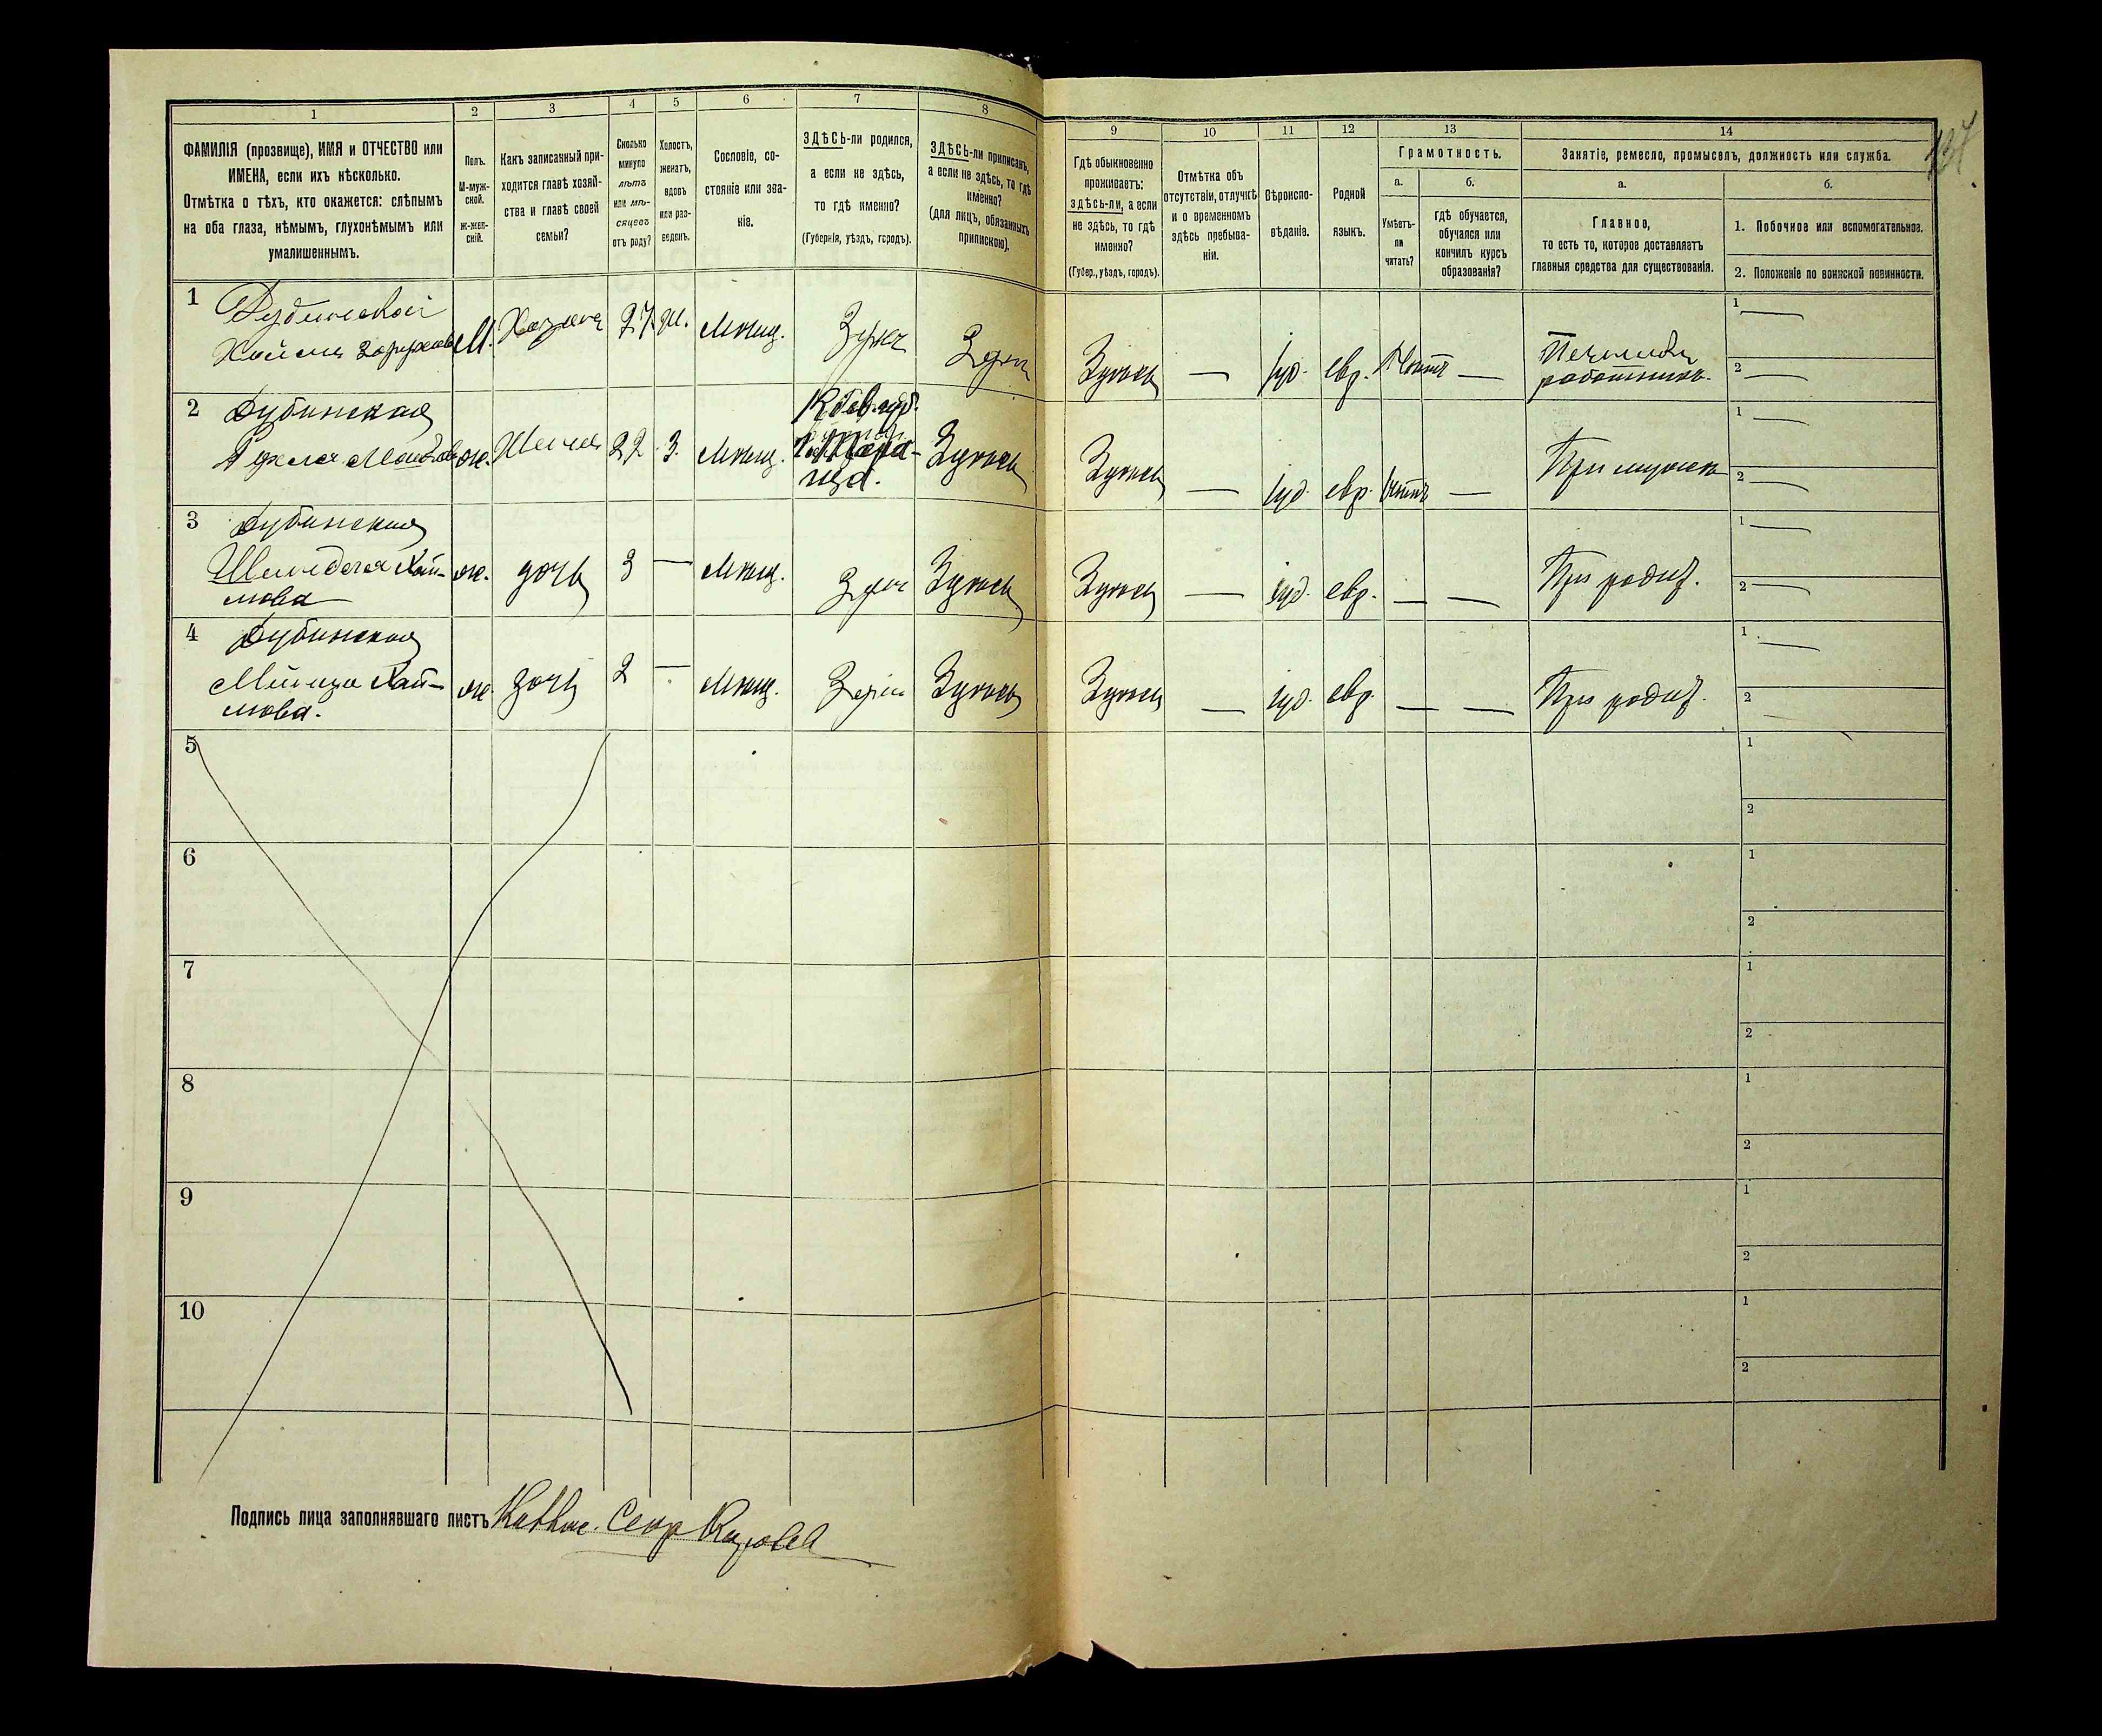 1
2
3
4
5
6
7
8
ФАМИЛІЯ (прозвище), ИМЯ и ОТЧЕСТВО или
ИМЕНА, если ихъ нѣсколько.
Отмѣтка о тѣхъ, кто окажется: слѣпымъ
на оба глаза, нѣмымъ, глухонѣмымъ или
умалишеннымъ.
Полъ.
М-муж-
ской.
Ж-жен-
скій.
Какъ записанный при-
ходится главѣ хозяй-
ства и главѣ своей
семьи?
Сколько
минуло
лѣтъ
или мѣ-
сяцевъ
отъ роду?
Холостъ,
женатъ,
вдовъ
или раз-
веденъ.
Сословіе, со-
стояніе или зва-
ніе.
ЗДѢСЬ-ли родился,
а если не здѣсь,
то гдѣ именно?
(Губернія, уѣздъ, городъ).
ЗДѢСЬ-ли приписанъ,
а если не здѣсь, то гдѣ
именно?
(для лицъ, обязанныхъ
припискою).
9
10
11
12
13
14
Гдѣ обыкновенно
проживаетъ:
здѣсь-ли, а если
не здѣсь, то гдѣ
именно?
(Губер., уѣздъ, городъ).
Отмѣтка объ
отсутствіи, отлучкѣ
и о временномъ
здѣсь пребыва-
ніи.
Вѣроиспо-
вѣданіе.
Родной
языкъ.
Грамотность.
а.
Умѣетъ-
ли
читать?
б.
гдѣ обучается,
обучался или
кончилъ курсъ
образованія?
Занятіе, ремесло, промыселъ, должность или служба.
а.
Главное,
то есть то, которое доставляетъ
главныя средства для существованія.
б.
1. Побочное или вспомогательное.
2. Положеніе по воинской повинности.
1
Дубинскій
Хаимъ
М. Хозяинъ 27 ж. Мѣщ.
Здѣсь
Здѣсь
Здѣсь — іуд. евр. —
работникъ.
1 —
2 —
2 Дубинская
ж. 22 з. Мѣщ.
Кіев. губ.
Тара-
ща.
Здѣсь
Здѣсь — іуд. евр. —
При мужѣ
1 —
2 —
3 Дубинская
Хай-
мова
ж. дочь 3 — Мѣщ. Здѣсь Здѣсь
Здѣсь — іуд. евр. — — При родит.
1 —
2 —
4 Дубинская
Хай-
мова.
ж. дочь 2 — Мѣщ. Здѣсь Здѣсь
Здѣсь — іуд. евр. — — При родит.
1 —
2 —
5
1
2
6
1
2
7
1
2
8
1
2
9
1
2
10
1
2
Подпись лица заполнявшаго листъ